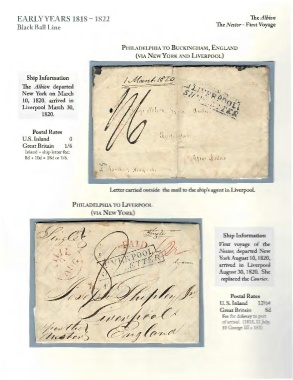 EARLY YEARS 1818 – 1822
Black Ball Line
The Albion
The Nestor – First Voyage
PHILADELPHIA TO BUCKINGHAM, ENGLAND
(VIA NEW YORK AND LIVERPOOL)
Ship Information
The Albion departed
New York on March
10, 1820, arrived in
Liverpool March 30,
1820.
Postal Rates
U.S. Inland 0
Great Britain 1/6
1 March 1820
LIVERPOOL
SHIP LETTER
Letter carried outside the mail to the ship's agent in Liverpool.
PHILADELPHIA TO LIVERPOOL
(VIA NEW YORK)
PAID
LIVERPOOL
Joseph Shipley Jr
Liverpool
England
Ship Information
First voyage of the
Nestor, departed New
York August 10, 1820,
arrived in Liverpool
August 30, 1820. She
replaced the Courier.
Postal Rates
U.S. Inland
Great Britain 8d